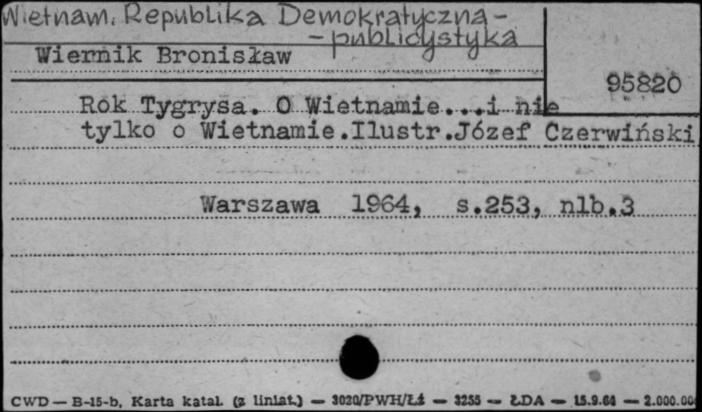 Wietnam. Republika Demokratyczna -
- publicystyka
Wiernik Bronisław
95820
Rok Tygrysa. O Wietnamie...i nie
tylko o Wietnamie.Ilustr.Józef Czerwiński
Warszawa 1964, s.253, nlb.3
CWD — B-15-b, Karta katal. (z liniat.) — 3020/PWH/Łź — 3255 — ŁDA — 15.9.61 — 2.000.00